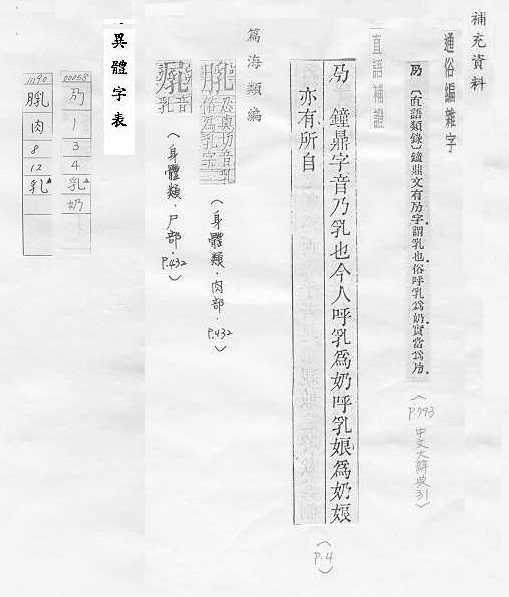 補充資料
通俗編雜字
𠄎 〔直語類錄〕鐘鼎文有𠄎字。謂乳也。俗呼乳爲奶。實當爲𠄎。
(P.993 中文大辭典引)
直語補證
鐘鼎字音乃乳也今人呼乳爲奶呼乳娘爲奶娘
亦有所自
(P.4)
篇海類編
忍與切音乳
俗爲乳字
(身體類.肉部.P.432)
音乳
(身體類.尸部.P.432)
異體字表
00058
1
3
4
乳▲
奶
1190
肉
8
12
乳▲